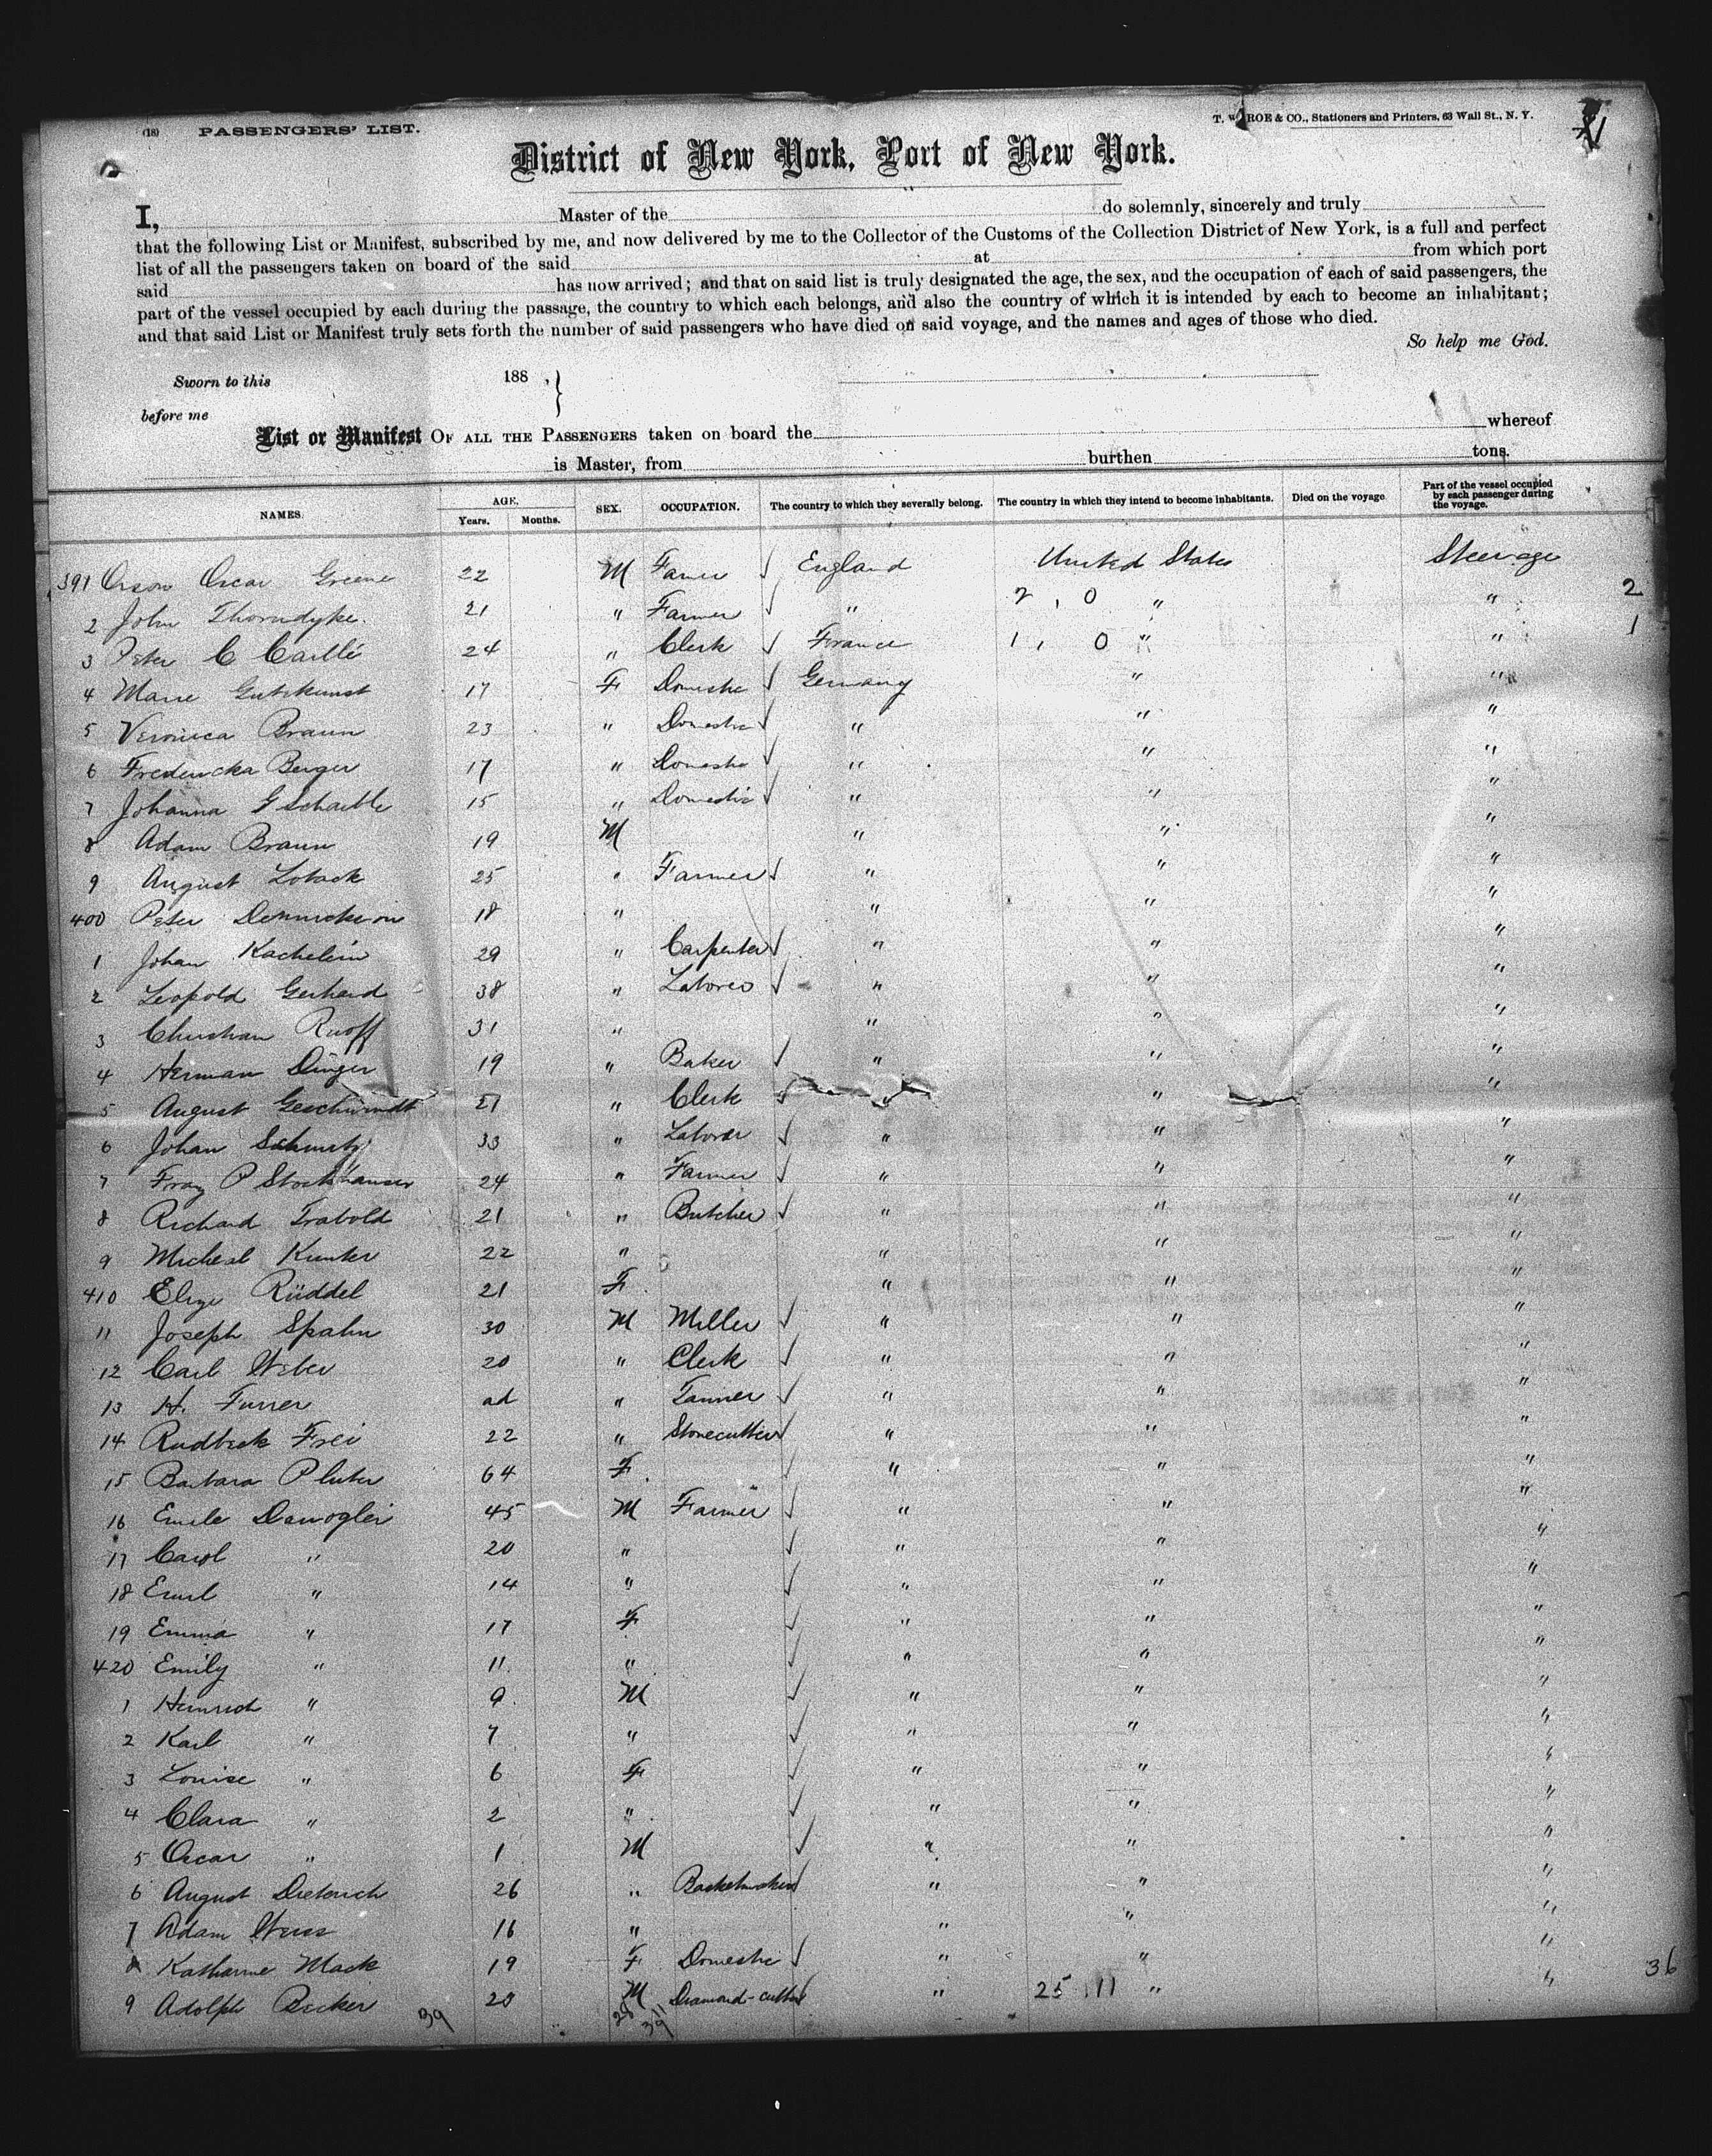 (18) PASSENGERS' LIST. T. W. ROE & CO., Stationers and Printers, 63 Wall St., N. Y.
District of New York, Port of New York.
I, Master of the do solemnly, sincerely and truly
that the following List or Manifest, subscribed by me, and now delivered by me to the Collector of the Customs of the Collection District of New York, is a full and perfect
list of all the passengers taken on board of the said at from which port
said has now arrived; and that on said list is truly designated the age, the sex, and the occupation of each of said passengers, the
part of the vessel occupied by each during the passage, the country to which each belongs, and also the country of which it is intended by each to become an inhabitant;
and that said List or Manifest truly sets forth the number of said passengers who have died on said voyage, and the names and ages of those who died.
So help me God.
Sworn to this 188 , }
before me
List or Manifest OF ALL THE PASSENGERS taken on board the whereof
is Master, from burthen tons.
NAMES. AGE. Years. Months. SEX. OCCUPATION. The country to which they severally belong. The country in which they intend to become inhabitants. Died on the voyage. Part of the vessel occupied by each passenger during the voyage.
391 Oscar Greene 22 M Farmer England United States Steerage
2 John Thorndyke. 21 " Farmer " 2 , 0 " " 2
3 Peter C 24 " Clerk France 1 , 0 " " 1
4 Marie Gutekunst 17 F Domestic Germany " "
5 Veronica Braun 23 " Domestic " " "
6 Fredericka Berger 17 " Domestic " " "
7 Johanna Gschaible 15 " Domestic " " "
8 Adam Braun 19 M " " "
9 August Loback 25 " Farmer " " "
400 Peter 18 " " " "
1 Johan Kachelein 29 " Carpenter " " "
2 Leopold Gerhard 38 " Laborer " " "
3 Christian Ruoff 31 " " " "
4 Herman Dinger 19 " Baker " " "
5 August Geschwindt 21 " Clerk " " "
6 Johan Schmitz 33 " Laborer " " "
7 Franz P Stockhauser 24 " Farmer " " "
8 Richard Trabold 21 " Butcher " " "
9 Micheal Kunker 22 " " " "
410 Elize Rüddel 21 F " " "
11 Joseph Spahn 30 M Miller " " "
12 Carl Weber 20 " Clerk " " "
13 H. Furrer ad " Tanner " " "
14 Frei 22 " Stonecutter " " "
15 Barbara Pluter 64 F " " "
16 Emile 45 M Farmer " " "
17 Carol " 20 " " " "
18 Emil " 14 " " " "
19 Emma " 17 F " " "
420 Emily " 11 " " " "
1 Heinrich " 9 M " " "
2 Karl " 7 " " " "
3 Louise " 6 F " " "
4 Clara " 2 " " " "
5 Oscar " 1 M " " "
6 August Dieterich 26 " Basketmaker " " "
7 Adam Weiss 16 " " " "
8 Katharine Mack 19 F Domestic " " "
9 Adolph Becker 20 M Diamond-cutter " 25 , 11 " " 36
39 28 11 39